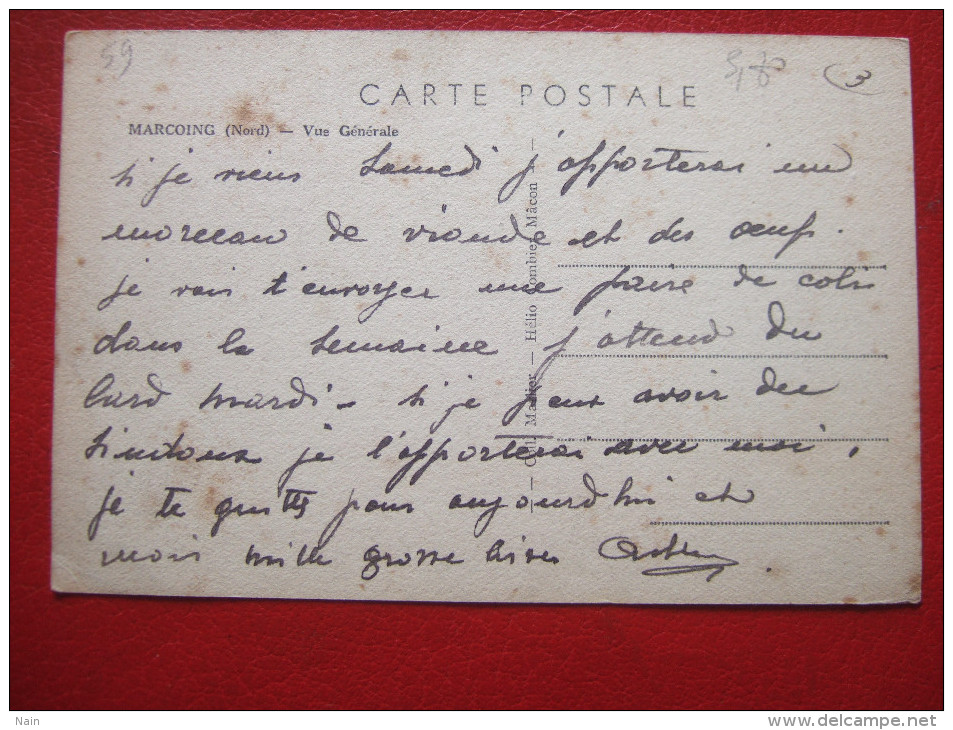 59
3
CARTE POSTALE
MARCOING (Nord) — Vue Générale
si je viens Samedi j'apporterai un
morceau de viande et des oeufs.
je vais t'envoyer une paire de colis
dans la semaine j'attend du
lard mardi - si je peux avoir du
je l'apporterai avec moi,
je te quitte pour aujourd'hui et
mille grosse bises
Hélio Combier Mâcon
Nain
http://www.delcampe.net